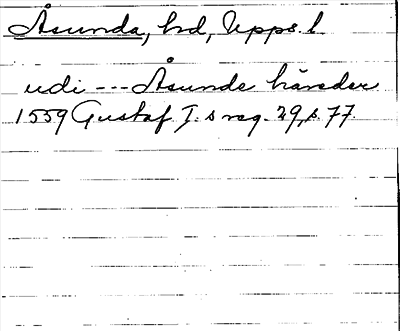 Åsunda, hd, Upps. l.
udi --- Åsunde häreder
1559 Gustaf I:s reg. 29, s. 77.